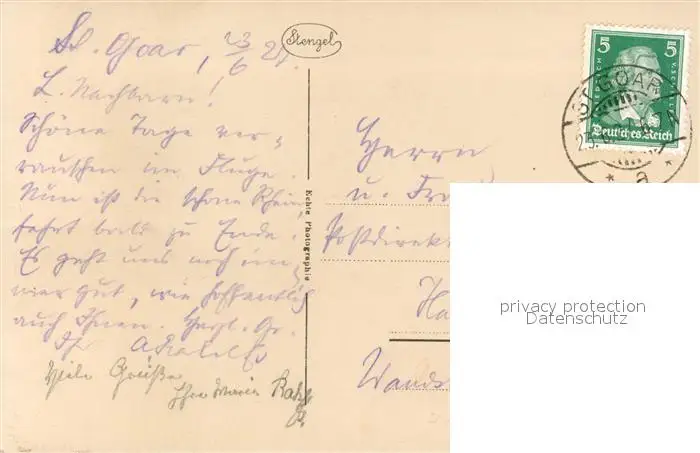 St. Goar, 23/6 27.
L. Nachbarn!
Schöne Tage ver-
rauschen im Fluge.
Nun ist die schöne Rhein
fahrt bald zu Ende.
Es geht uns noch im-
mer gut, wie hoffentlich
auch Ihnen. Herzl. Gr.
Ihr
Viele Grüße
Ihre Maria
Stengel
Echte Photographie
Herrn
u. Fr
Postdirekt
Ha
Wands
5 5
Deutsches Reich
ST. GOAR
* a *
privacy protection
Datenschutz